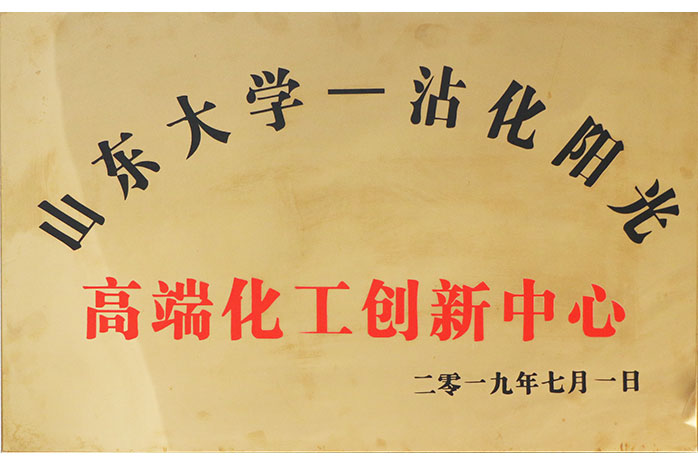 山东大学—沾化阳光
高端化工创新中心
二零一九年七月一日